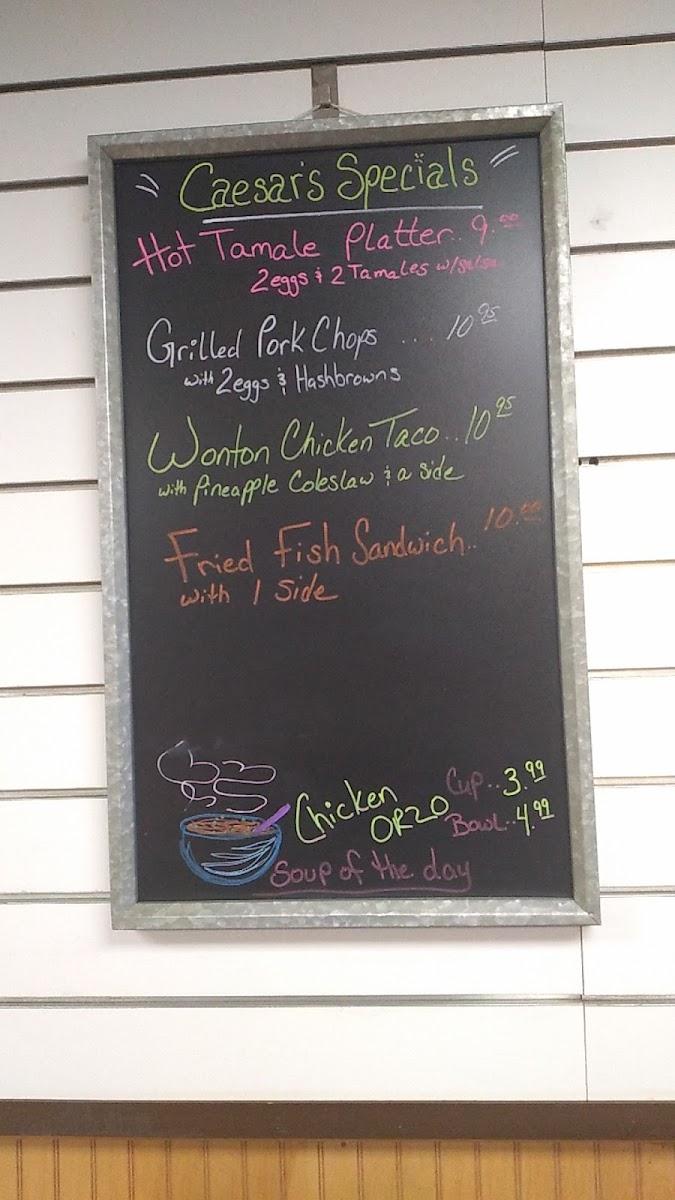 Caesar's Specials
Hot Tamale Platter.. 9.00
2 eggs & 2 Tamales w/salsa
Grilled Pork Chops .... 10 95
with 2 eggs & Hashbrowns
Wonton Chicken Taco.. 10 95
with Pineapple Coleslaw & a side
Fried Fish Sandwich.. 10.00
with 1 Side
Chicken ORZO
Cup.. 3.99
Bowl.. 4.99
Soup of the day